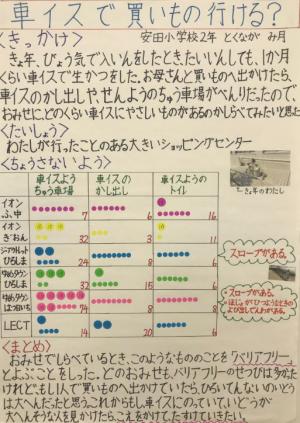 車イスで買いもの行ける?
<きっかけ>
安田小学校2年 とくなが み月
きょ年、びょう気で入いんをしとき、たいいんしても、1か月
くらい車イスで生かつをした。お母さんと買いものへ出かけたら、
車イスのかし出しや、せんようのちゅう車場がべんりだったので、
おみせに、どのくらい車イスにやさしいものがあるのかしらべてみたいと思った。
<たいしょう>
わたしが行ったことのある大きいショッピングセンター
<ちょうさないよう>
きょ年のわたし
車イスよう
ちゅう車場
車イスの
かし出し
車イスようの
トイレ
イオン
ふ中
7
6
16
イオン
ぎおん
32
3
11
ジアウトレット
ひろしま
24
8
スロープがある。
ゆめタウン
ひろしま
32
15
6
ゆめタウン
はつかいち
74
8
8
スロープがある。
LECT
14
20
6
<まとめ>
おみせでしらべているとき、このようなもののことを「バリアフリー」
とよぶことをしった。どのおみせも、バリアフリーのせつびは多かった
けれど、もし1人で買いものへ出かけていたら、ひろいてんないのいどう
は大へんだったと思う。これからもし車イスにのっていて、いどうが
大へんそうな人を見かけたら、こえをかけて、たすけていきたい。